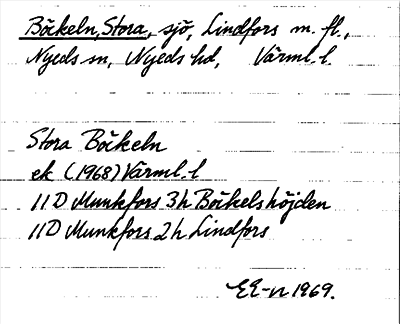 Böckeln, Stora, sjö, Lindfors m. fl.,
Nyeds sn, Nyeds hd, Värml. l.
Stora Böckeln
ek (1968) Värml. l
11D Munkfors 3h Böckelshöjden
11D Munkfors 2h Lindfors
EE-n 1969.